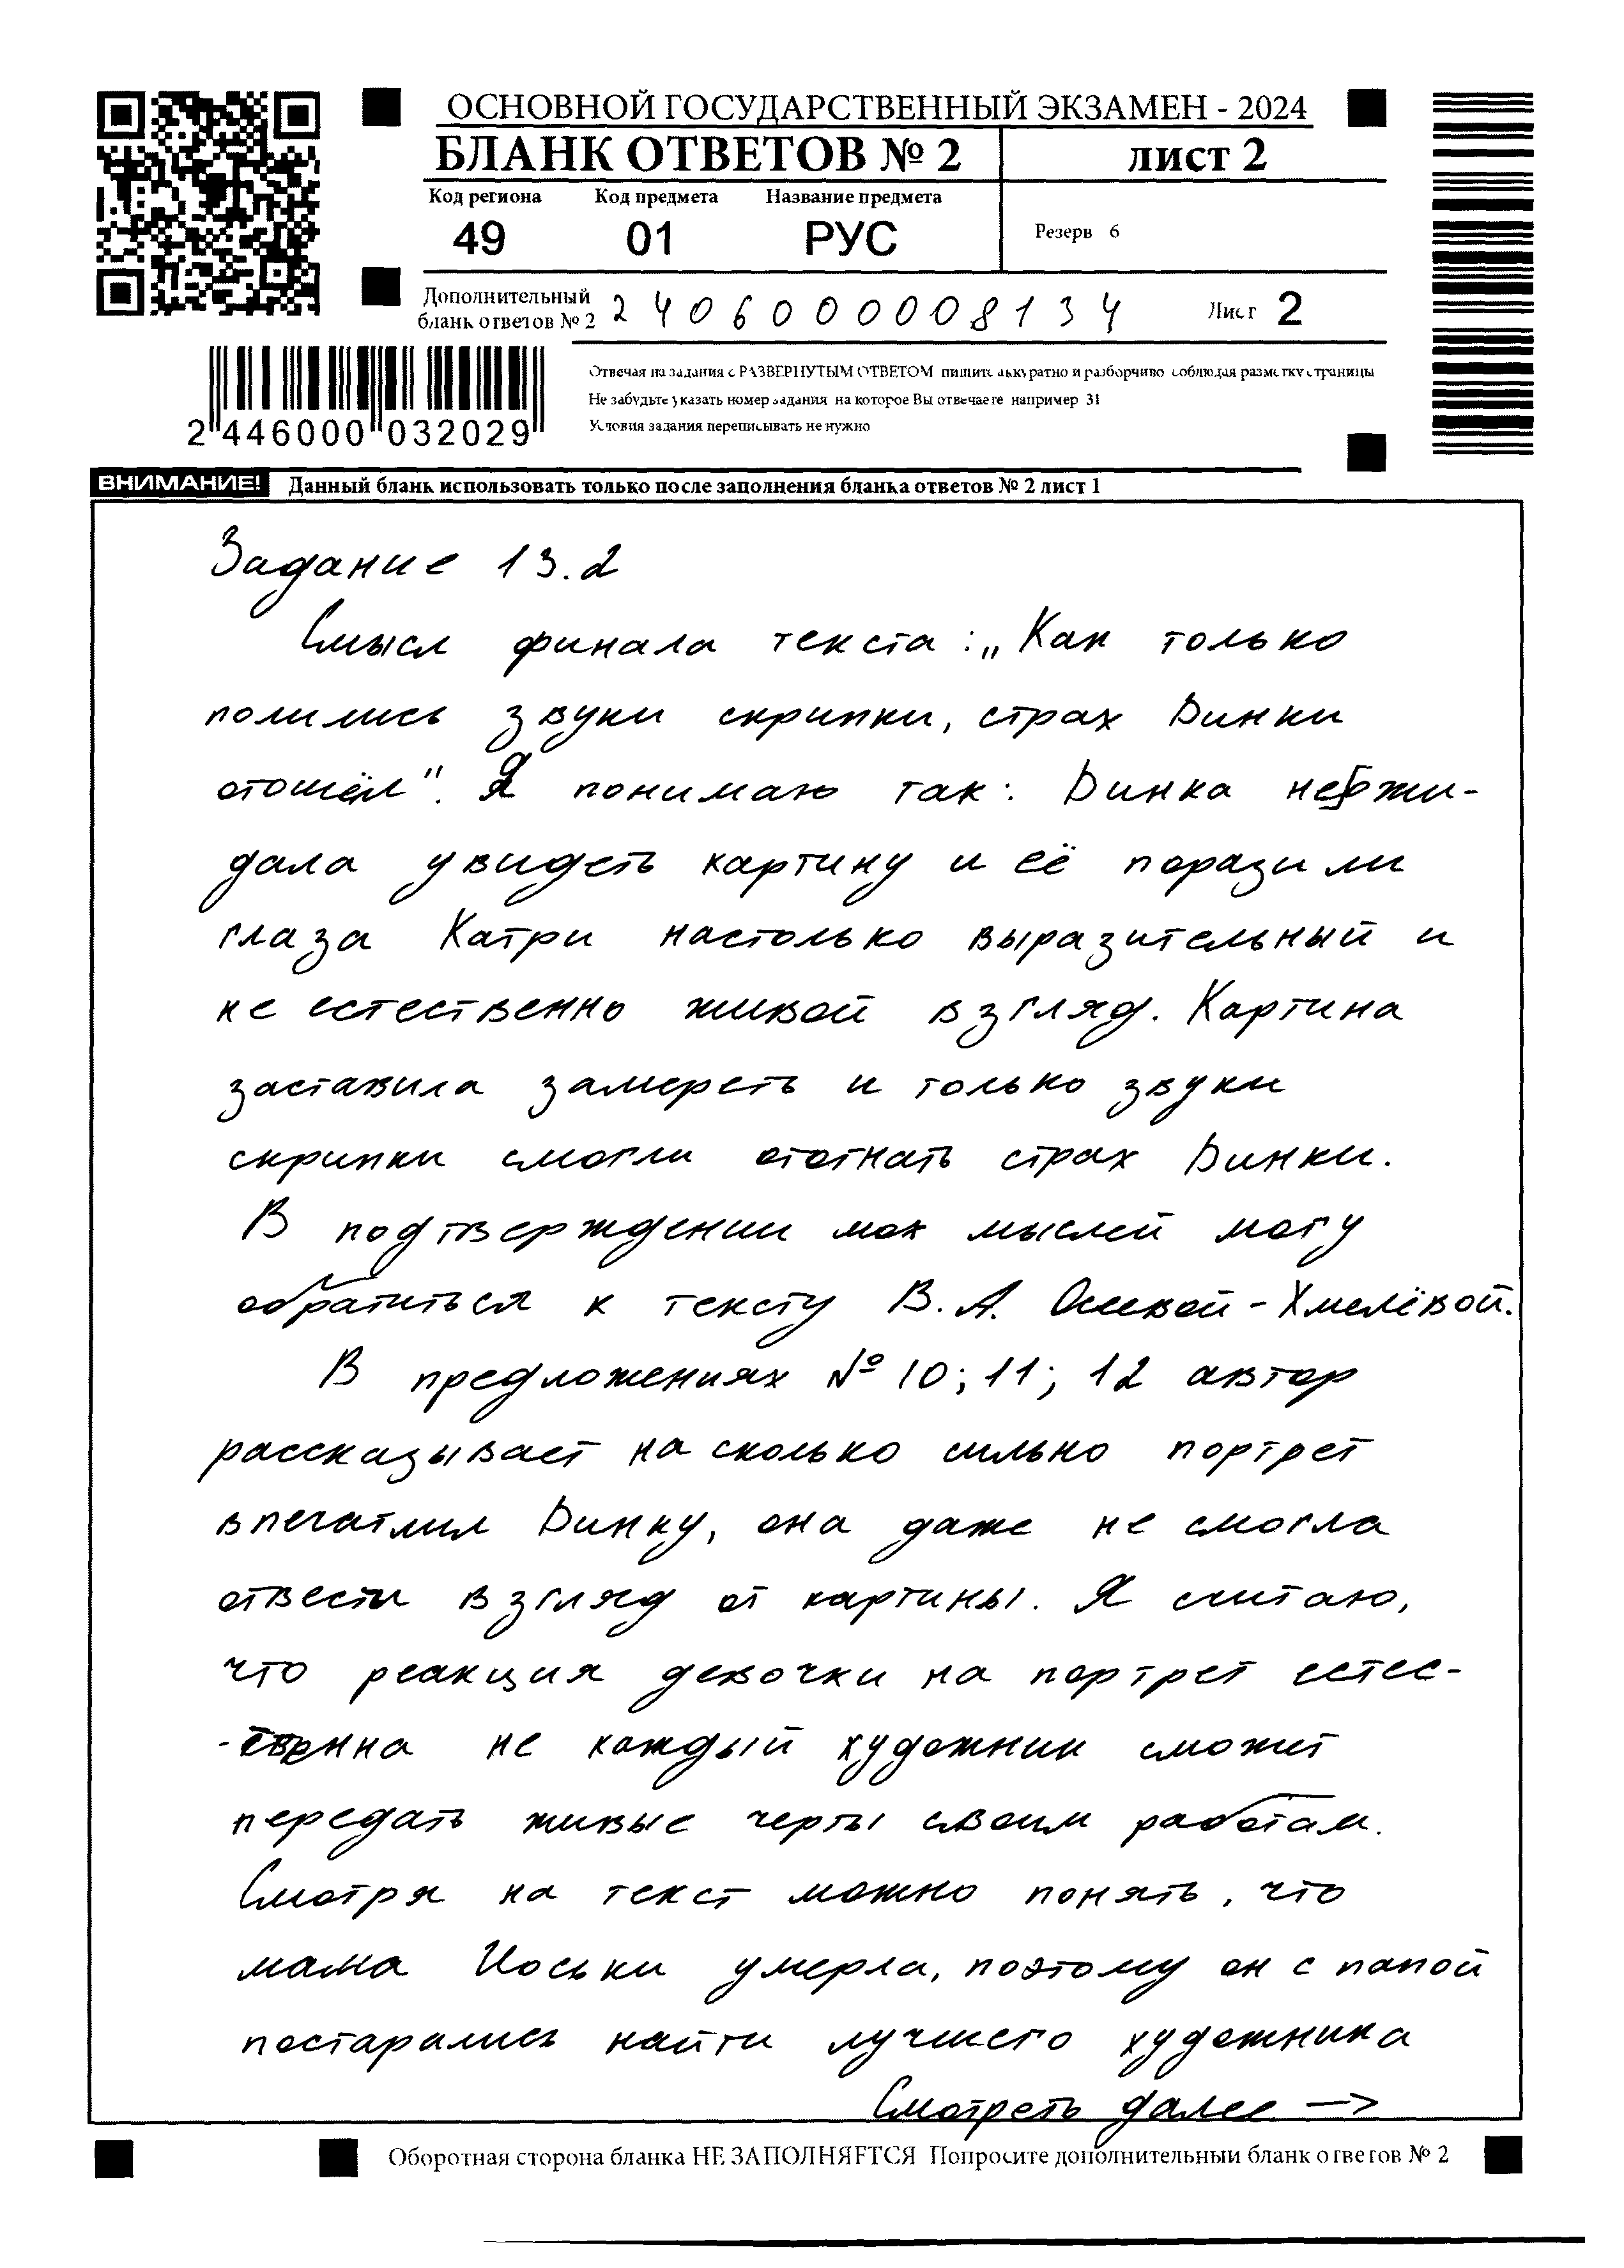 ОСНОВНОЙ ГОСУДАРСТВЕННЫЙ ЭКЗАМЕН - 2024
БЛАНК ОТВЕТОВ № 2 лист 2
Код региона Код предмета Название предмета
49 01 РУС
Резерв 6
Дополнительный
бланк ответов № 2 2406000008134 Лист 2
Отвечая на задания с РАЗВЕРНУТЫМ ОТВЕТОМ пишите аккуратно и разборчиво соблюдая разметку страницы
Не забудьте указать номер задания на которое Вы отвечаете например 31
Условия задания переписывать не нужно
2 446000 032029
ВНИМАНИЕ! Данный бланк использовать только после заполнения бланка ответов № 2 лист 1
Задание 13.2
Смысл финала текста: „Как только
полились звуки скрипки, страх Динки
отошёл". Я понимаю так: Динка неожи-
дала увидеть картину и её поразили
глаза Катри настолько выразительный и
не естественно живой взгляд. Картина
заставила замереть и только звуки
скрипки смогли отогнать страх Динки.
В подтверждении мох мыслей могу
обратиться к тексту В.А. Осеевой-Хмелёвой.
В предложениях № 10; 11; 12 автор
рассказывает на сколько сильно портрет
впечатлил Динку, она даже не смогла
отвести взгляд от картины. Я считаю,
что реакция девочки на портрет естес-
-твенна не каждый художник сможет
передать живые черты своим работам.
Смотря на текст можно понять, что
мама Иоськи умерла, поэтому он с папой
постарались найти лучшего художника
Смотреть далее —>
Оборотная сторона бланка НЕ ЗАПОЛНЯЕТСЯ Попросите дополнительный бланк ответов № 2